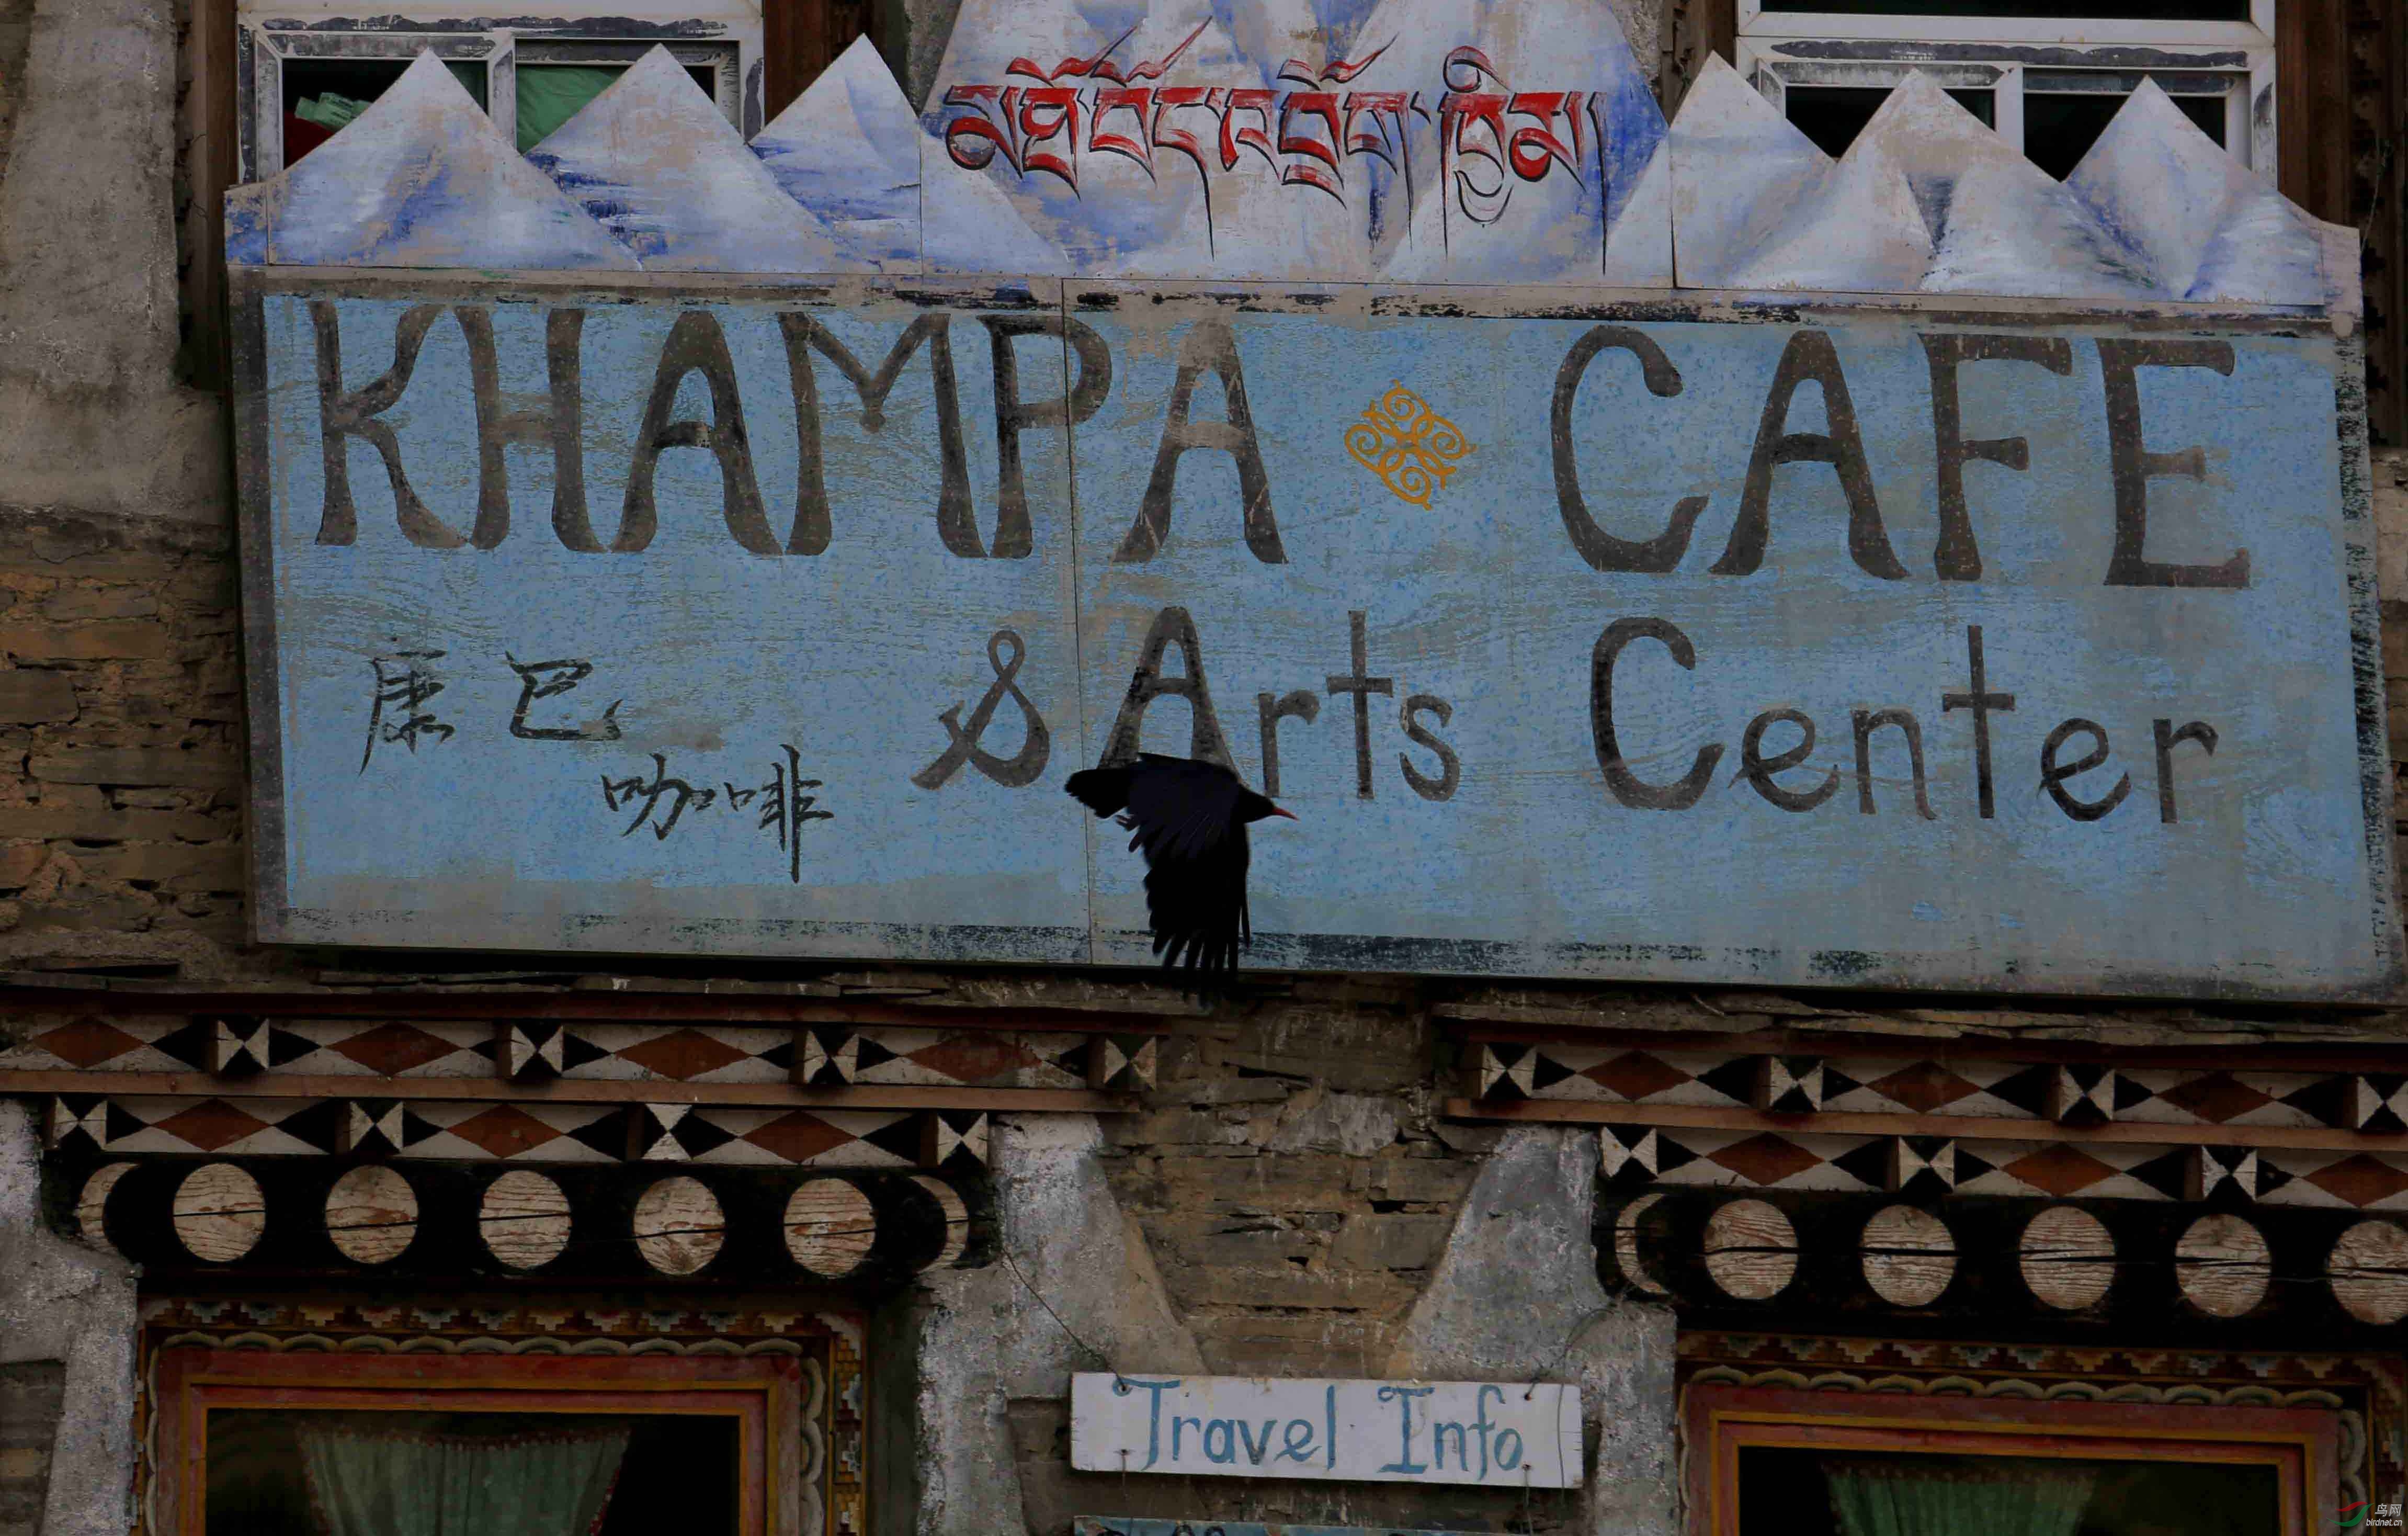 KHAMPA CAFE
& Arts Center
康巴
咖啡
Travel Info
鸟网
birdnet.cn